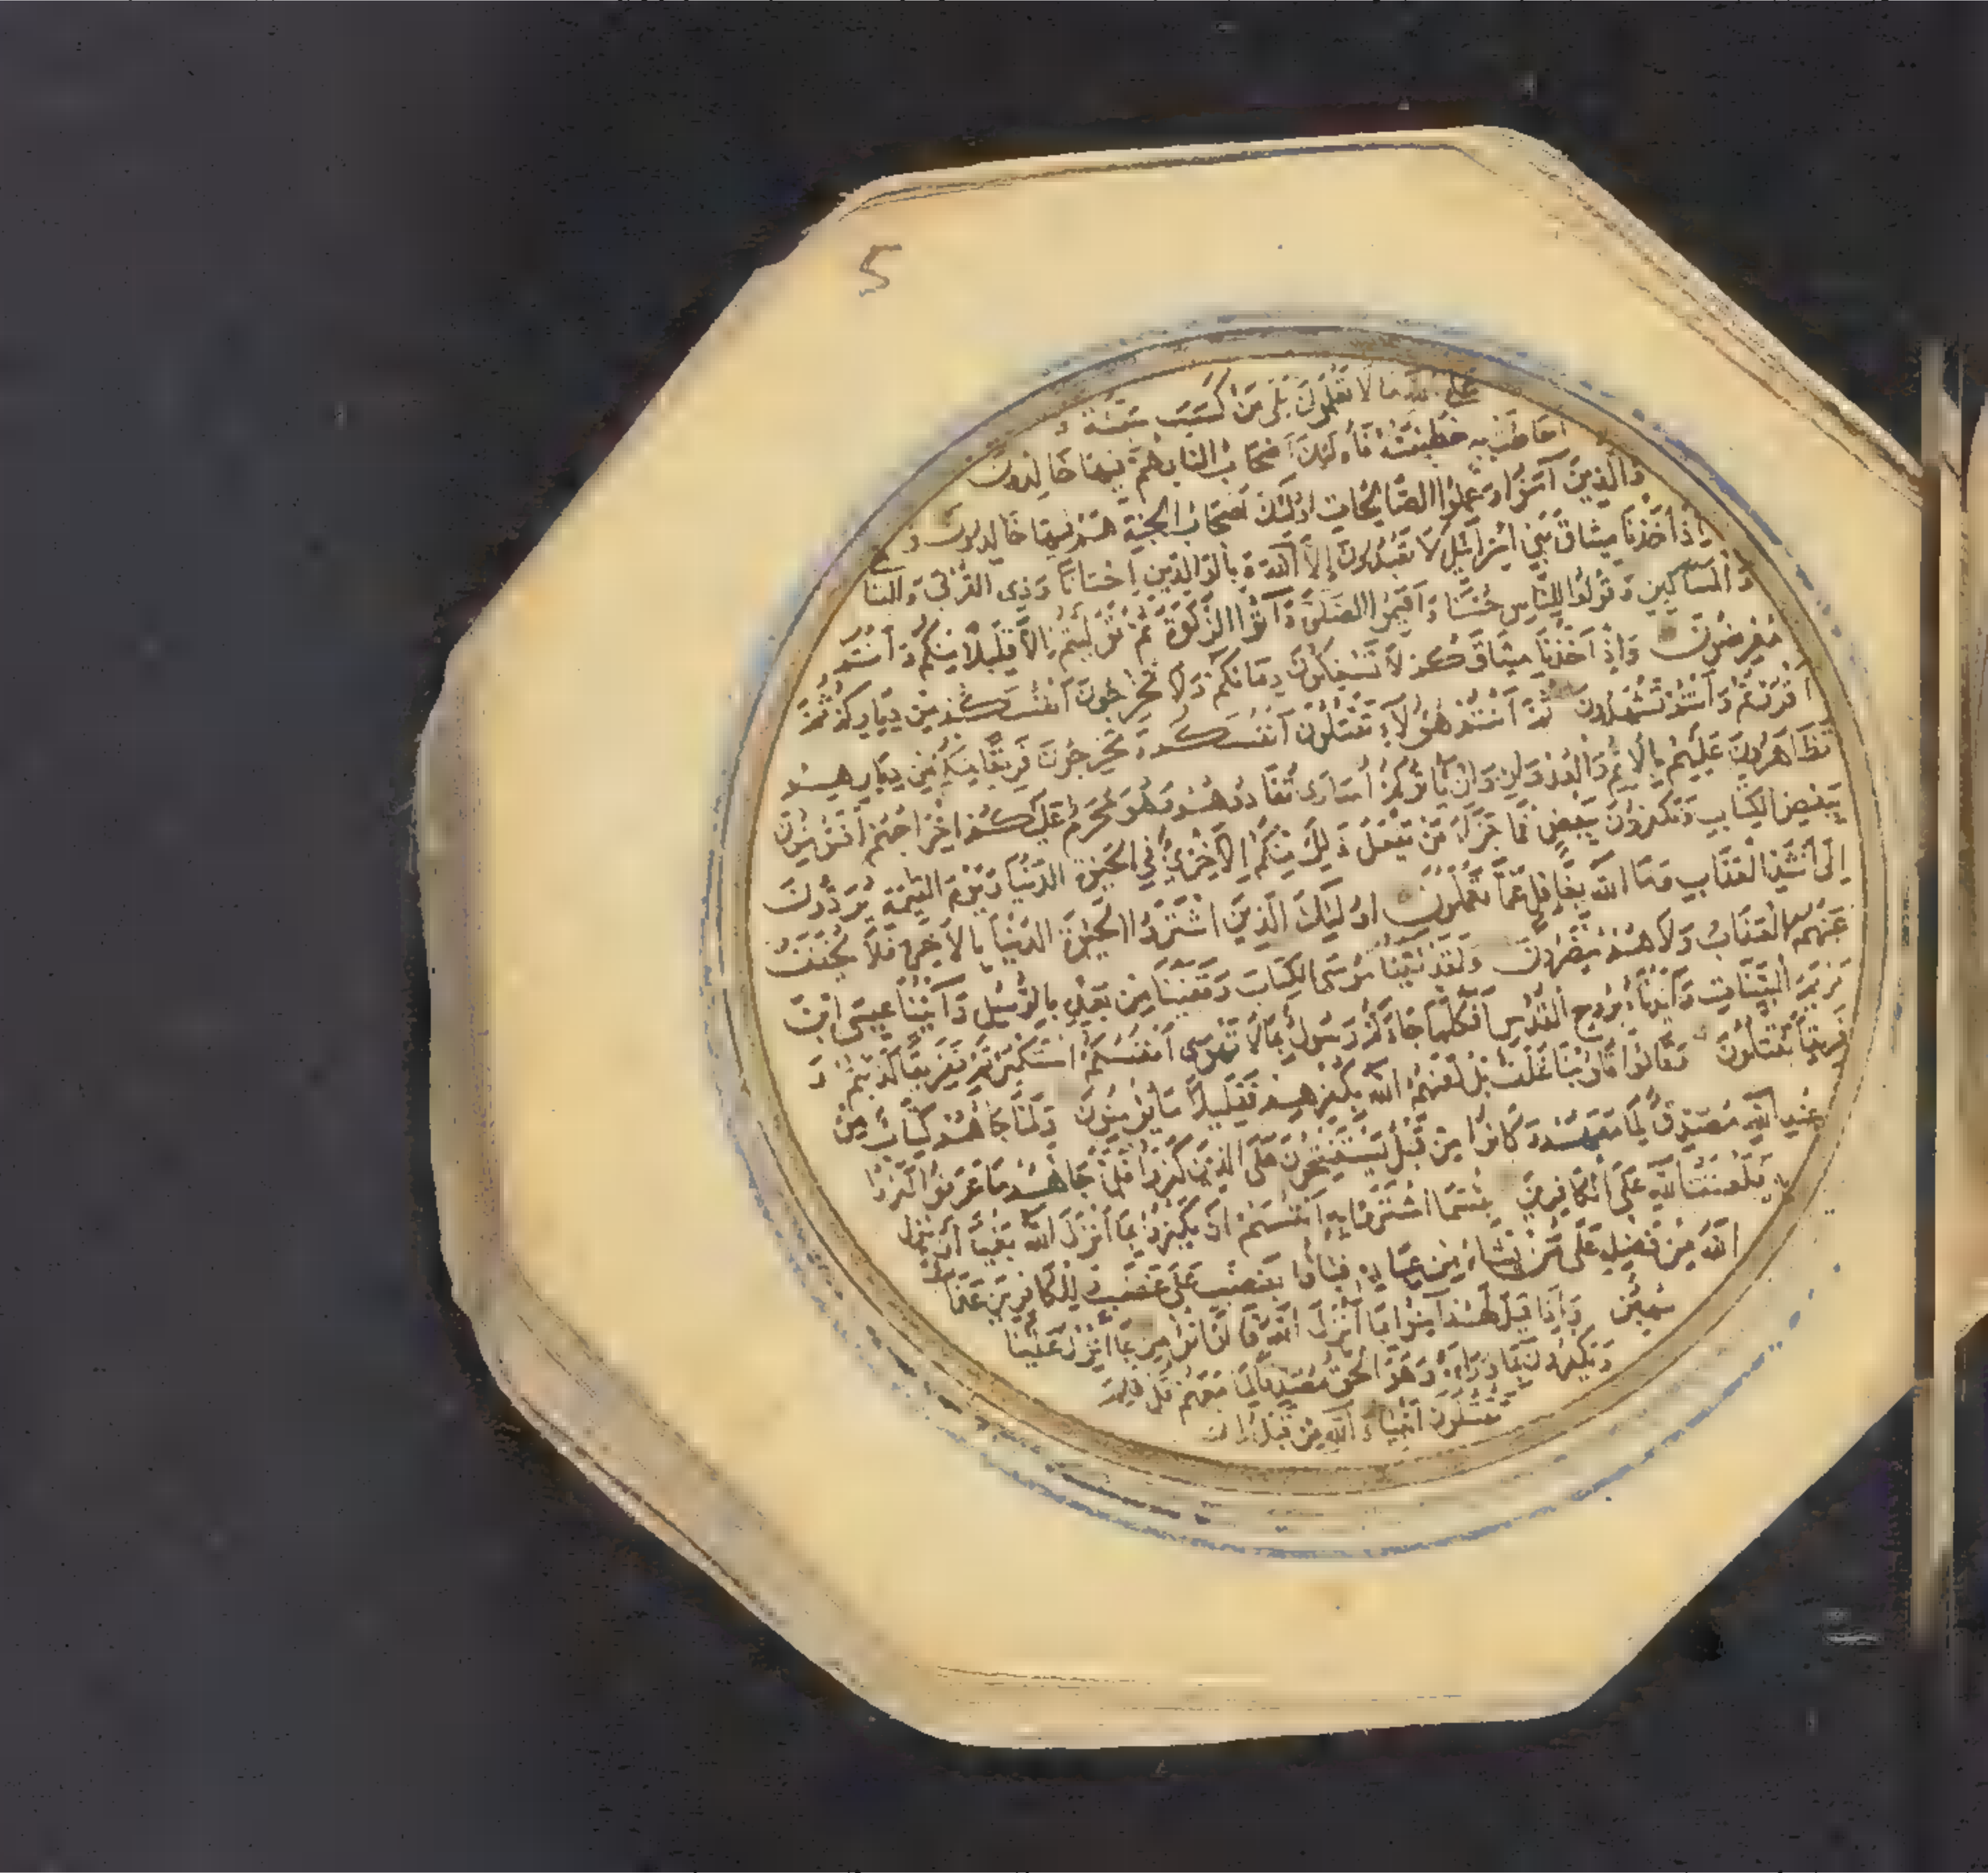 5
على الله ما لا تعلمون بلى من كسب سيئة و
احاطت به خطيئته فأولئك أصحاب النار هم فيها خالدون
والذين آمنوا وعملوا الصالحات اولئك أصحاب الجنة هم فيها خالدون و
إذ أخذنا ميثاق بني اسرائيل لا تعبدون إلا الله و بالوالدين احسانا وذي القربى واليتا
والمساكين وقولوا للناس حسنا وأقيموا الصلوة وآتوا الزكوة ثم توليتم إلا قليلا منكم وأنتم
معرضون وإذ أخذنا ميثاقكم لا تسفكون دمائكم ولا تخرجون أنفسكم من دياركم ثم
أقررتم وأنتم تشهدون ثم أنتم هؤلاء تقتلون أنفسكم وتخرجون فريقا منكم من ديارهم
تظاهرون عليهم بالاثم والعدوان وإن يأتوكم أسارى تفادوهم وهو محرم عليكم اخراجهم أفتؤمنون
ببعض الكتاب وتكفرون ببعض فما جزاء من يفعل ذلك منكم إلا خزي في الحيوة الدنيا ويوم القيمة يردون
إلى أشد العذاب وما الله بغافل عما تعملون اولئك الذين اشتروا الحيوة الدنيا بالآخرة فلا يخفف
عنهم العذاب ولا هم ينصرون ولقد آتينا موسى الكتاب وقفينا من بعده بالرسل وآتينا عيسى ابن
مريم البينات وأيدناه بروح القدس أفكلما جاءكم رسول بما لا تهوى أنفسكم استكبرتم ففريقا كذبتم و
فريقا تقتلون وقالوا قلوبنا غلف بل لعنهم الله بكفرهم فقليلا ما يؤمنون ولما جاءهم كتاب من
عند الله مصدق لما معهم وكانوا من قبل يستفتحون على الذين كفروا فلما جاءهم ما عرفوا كفروا
به فلعنة الله على الكافرين بئسما اشتروا به أنفسهم ان يكفروا بما أنزل الله بغيا أن ينزل
الله من فضله على من يشاء من عباده فباؤا بغضب على غضب وللكافرين عذاب
مهين وإذا قيل لهم آمنوا بما أنزل الله قالوا نؤمن بما انزل علينا
ويكفرون بما وراءه وهو الحق مصدقا لما معهم قل فلم
تقتلون أنبياء الله من قبل ان